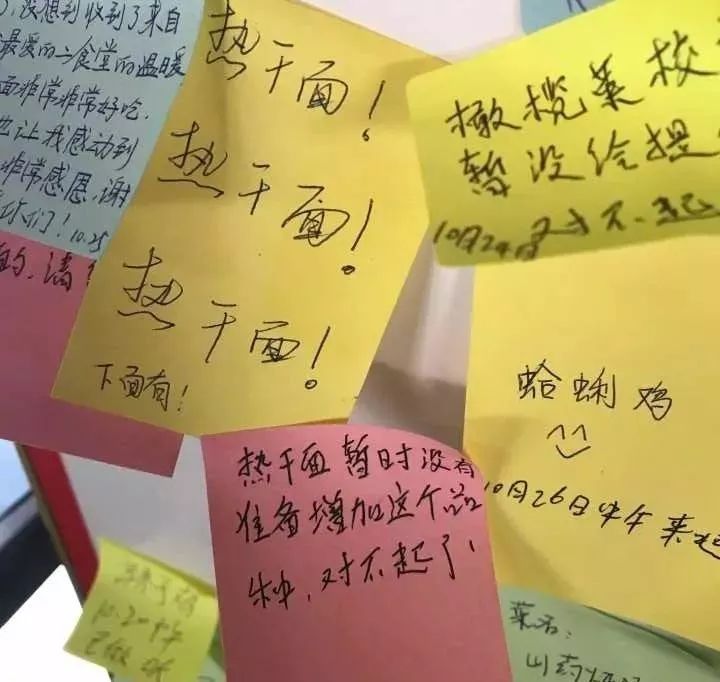 没想到收到了来自
最爱的二食堂的温暖
面非常非常好吃.
也让我感动到
非常感恩,谢
你们! 10.25
热干面!
热干面!
热干面!
下面有!
橄榄菜校
暂没给提
10月24日 对不起
的,请
蛤蜊鸡
10月26日中午来吃
热干面暂时没有
准备增加这个品
种,对不起了!
菜名:
山药